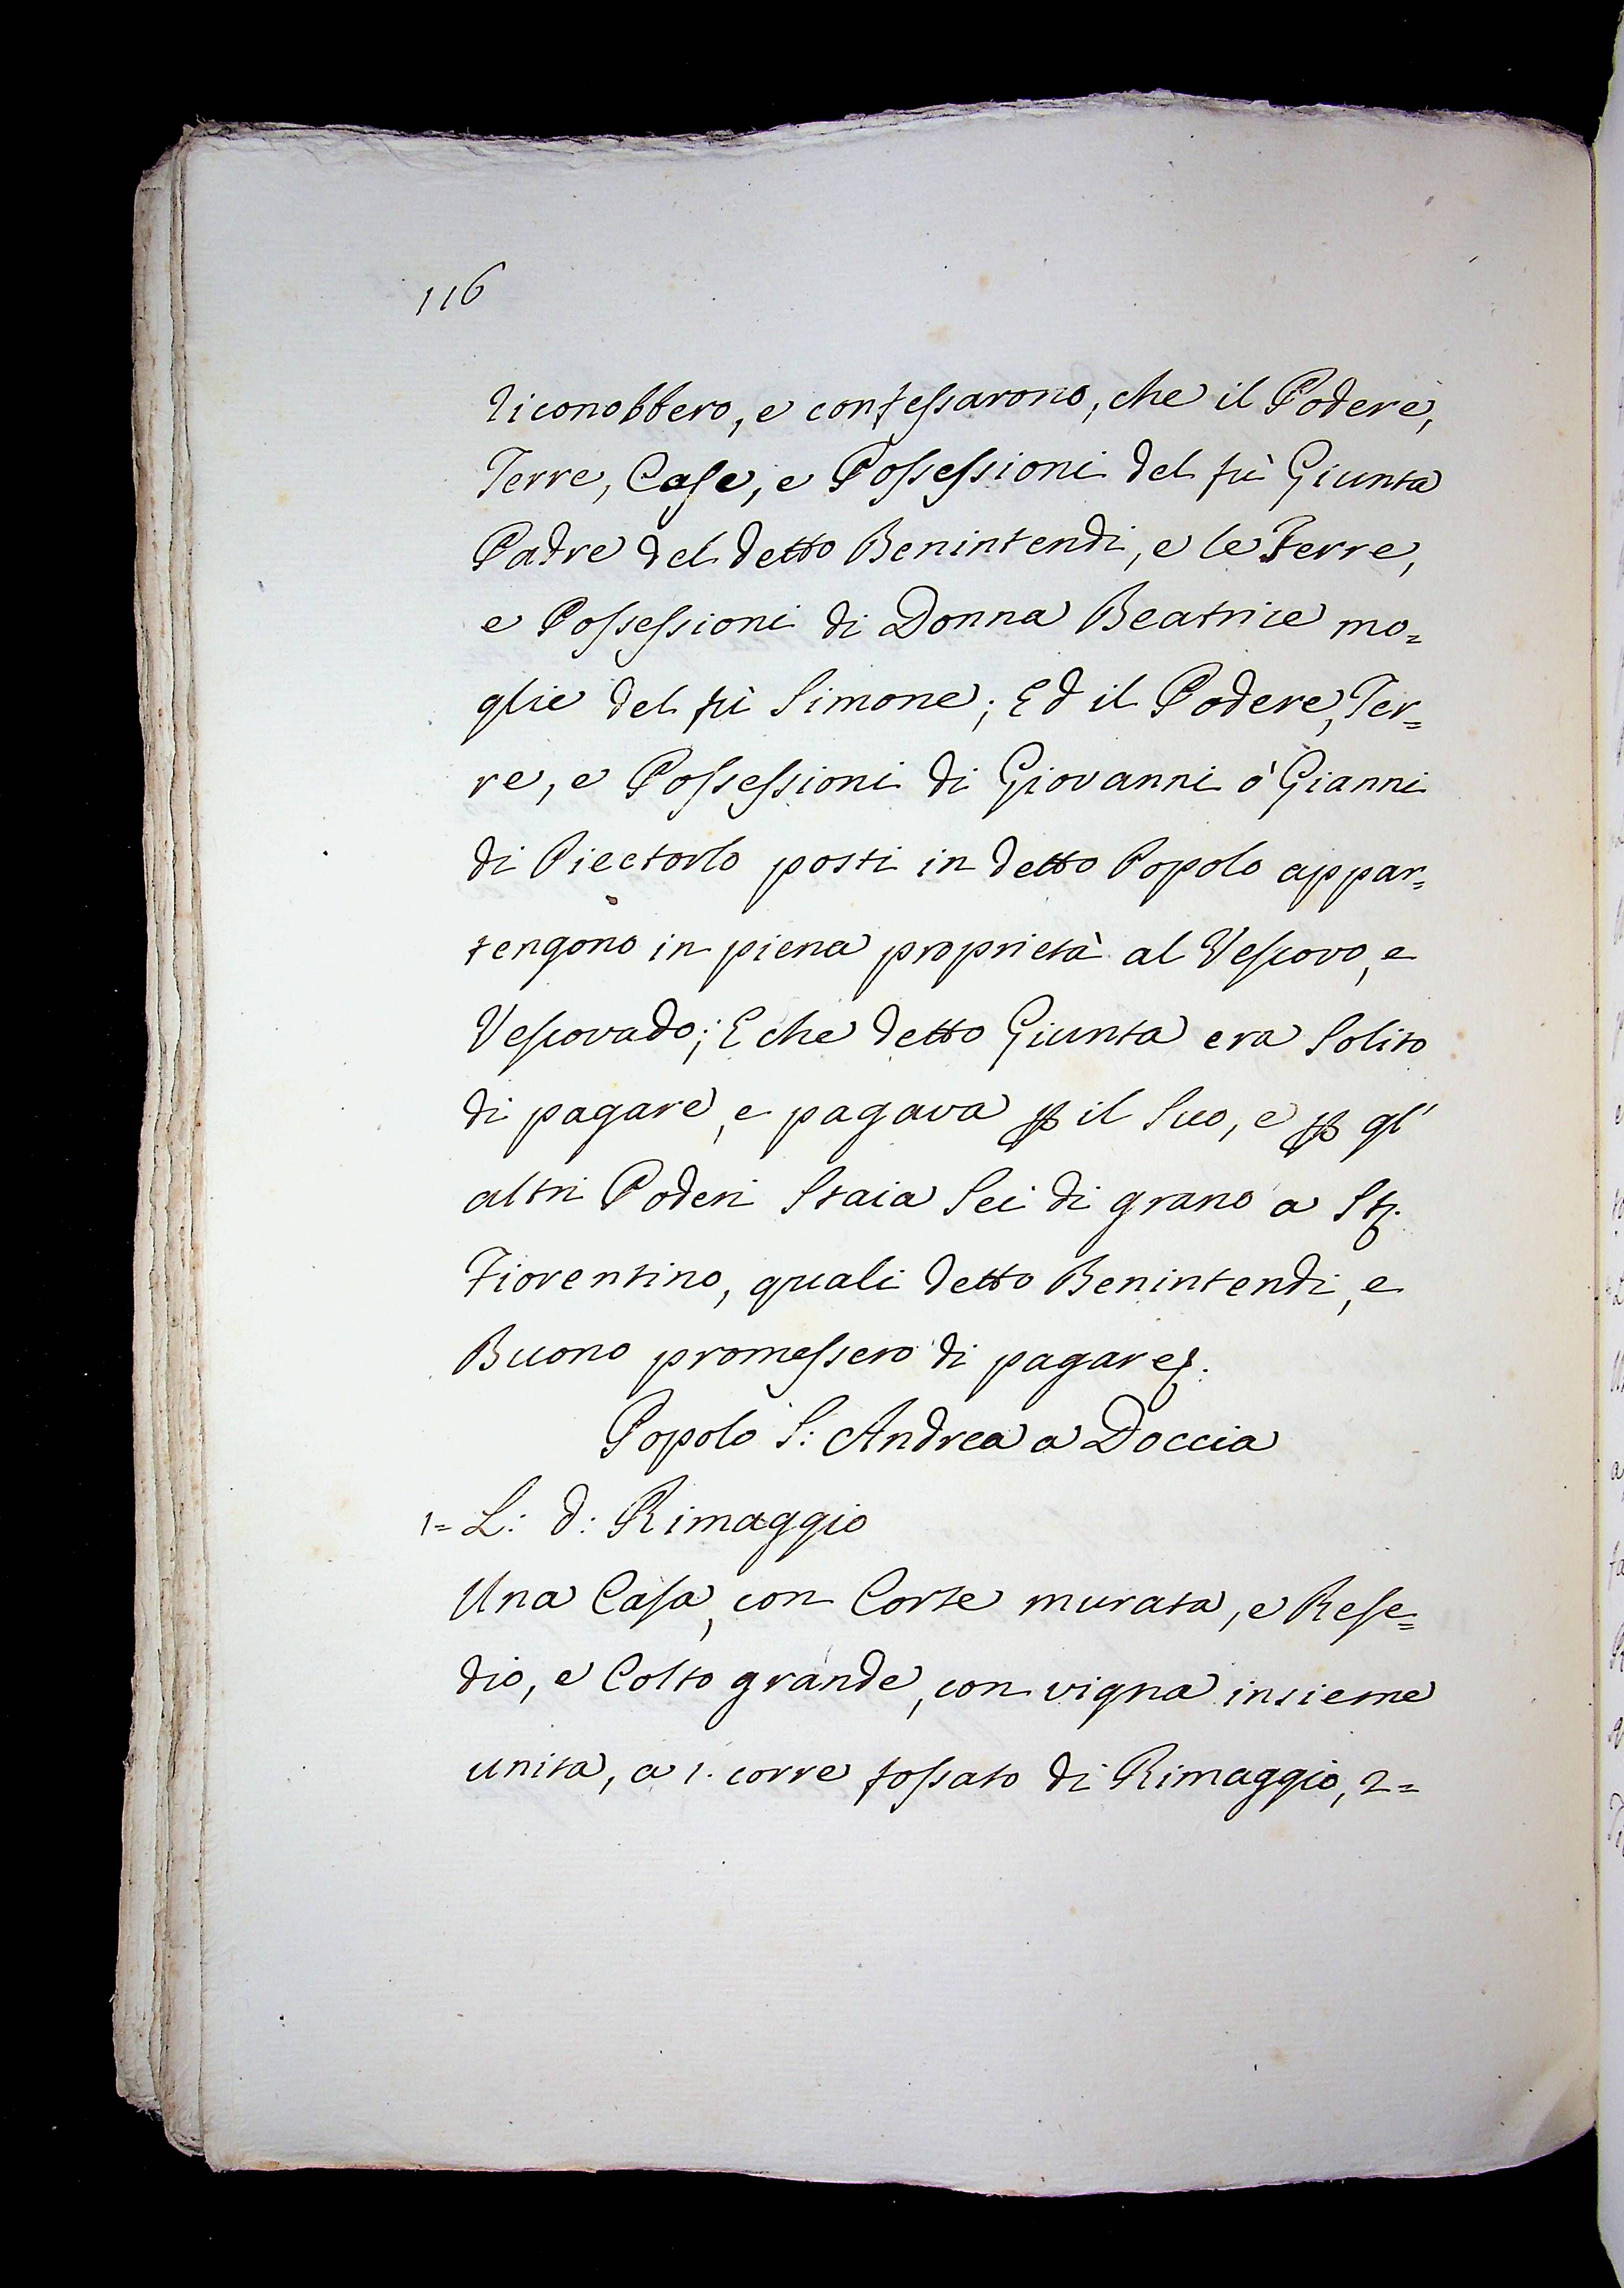 116
riconobbero, e confessarono, che il Podere,
Terre, Case, e Possessioni del fù Giunta
Padre del detto Benintendi, e le Terre,
e Possessioni di Donna Beatrice mo=
glie del fù Simone; Ed il Podere, Ter=
re, e Possessioni di Giovanni ò Gianni
di Piectorlo posti in detto Popolo appar=
tengono in piena proprietà al Vescovo, e
Vescovado; E che detto Giunta era Solito
di pagare, e pagava ꝑ il Suo, e ꝑ gl'
altri Poderi Staia Sei di grano a St.
Fiorentino, quali detto Benintendi, e
Buono promessero di pagare.
Popolo S: Andrea a Doccia
1= L: d: Rimaggio
Una Casa, con Corte murata, e Rese=
dio, e Colto grande, con vigna insieme
unita, a 1. corre fossato di Rimaggio, 2=